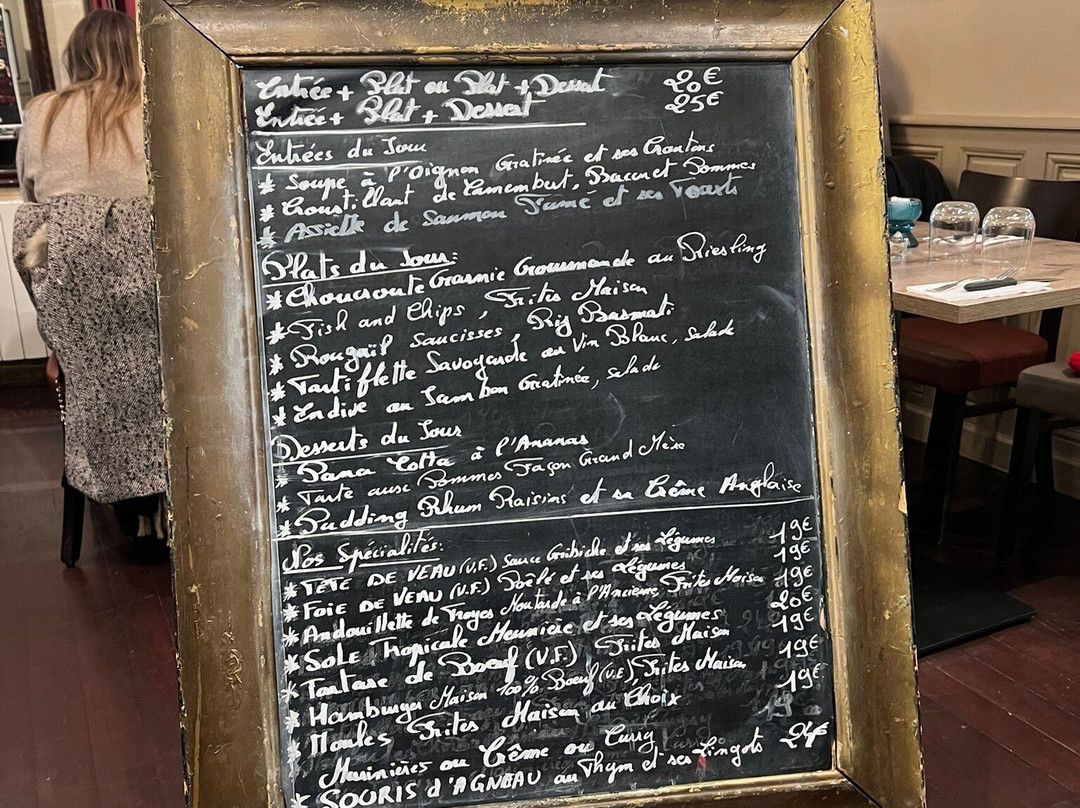 Entrée + Plat ou Plat + Dessert 20€
Entrée + Plat + Dessert 25€
Entrées du Jour
* Soupe à l'Oignon Gratinée et ses Croutons
* Croustillant de Camembert, Bacon et Pommes
* Assiette de Saumon Fumé et ses Toasts
Plats du Jour:
* Choucroute Garnie Gourmande au Riesling
* Fish and Chips, Frites Maison
* Rougail saucisses, Riz Basmati
* Tartiflette Savoyarde au Vin Blanc, salade
* Endive au Jambon Gratinée, salade
Desserts du Jour
* Pana Cotta à l'Ananas
* Tarte aux Pommes Façon Grand Mère
* Pudding Rhum Raisins et sa Crême Anglaise
Nos Spécialités:
* TÊTE DE VEAU (V.F.) Sauce Gribiche et ses Légumes 19€
* FOIE DE VEAU (V.F.) Poêlé et ses Légumes 19€
* Andouillette de Troyes Moutarde à l'Ancienne, Frites Maison 19€
* SOLE Tropicale Meunière et ses Légumes 20€
* Tartare de Boeuf (V.F.) Frites Maison 19€
* Hamburger Maison 100% Boeuf (V.F.), Frites Maison 19€
* Moules Frites Maison au Choix 19€
Marinières ou Crême ou Curry
* SOURIS d'AGNEAU au Thym et ses Lingots